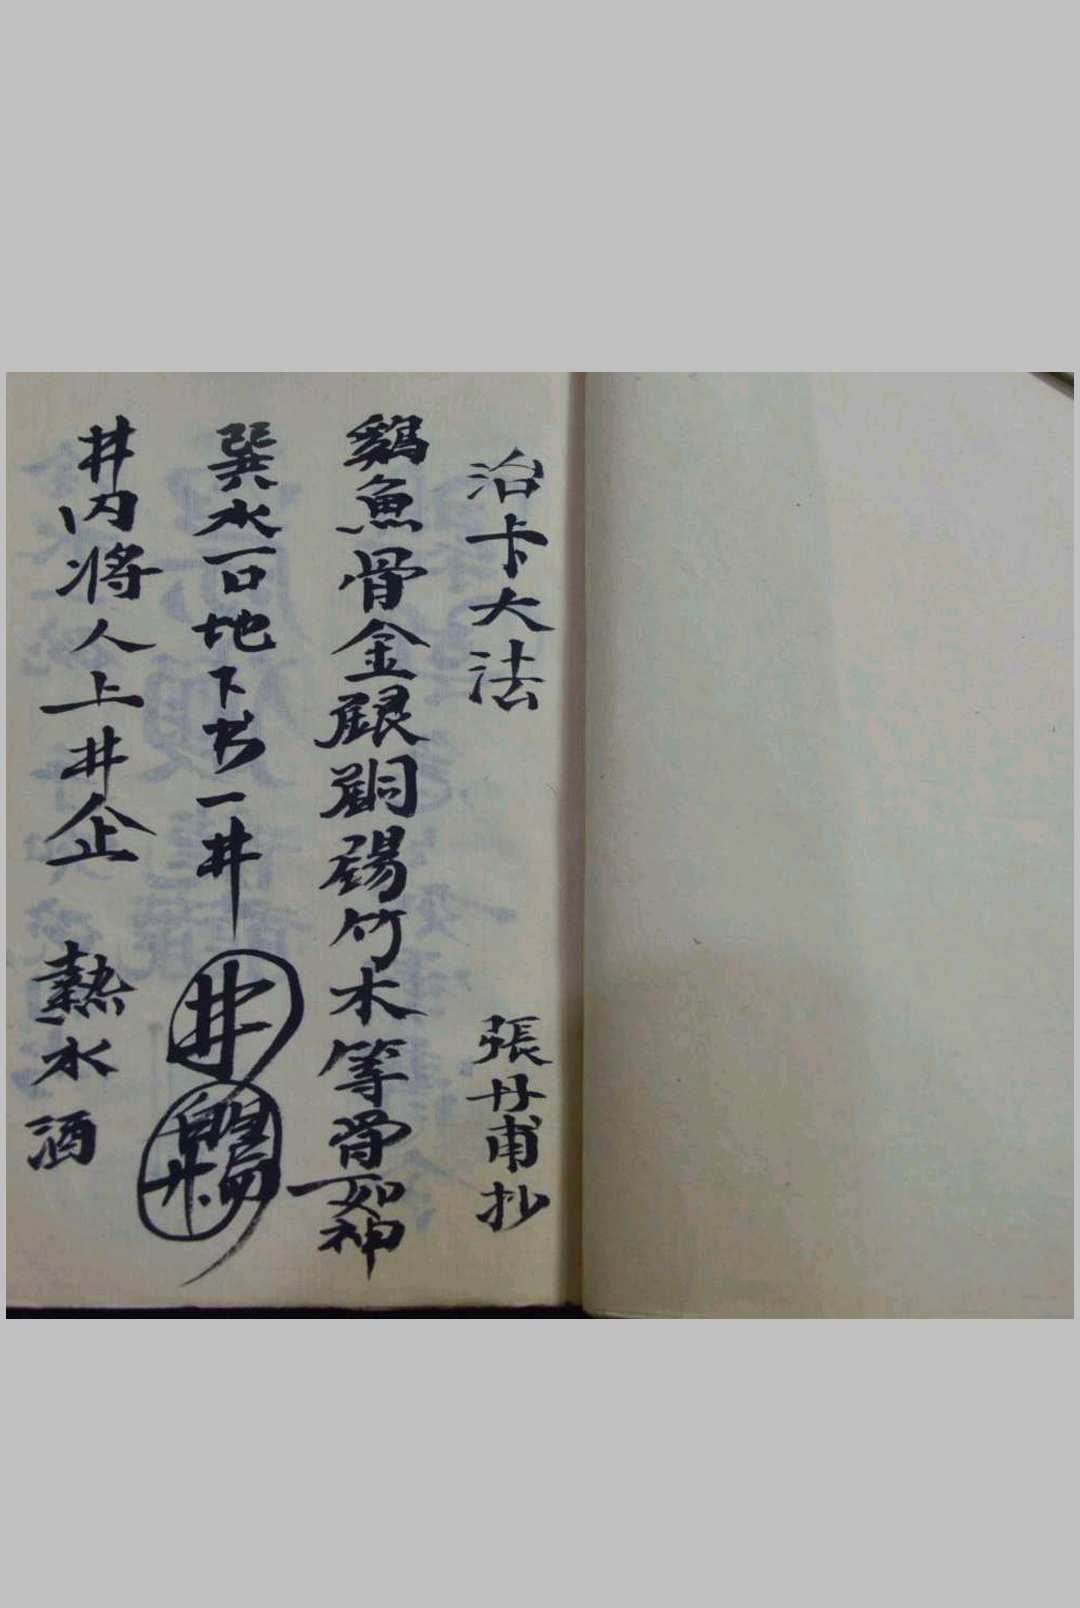 治卡大法 張丹甫抄
鷄魚骨金銀銅錫竹木等骨如神
巽水一口地下书一井 井
井内將人上井企 熱水酒